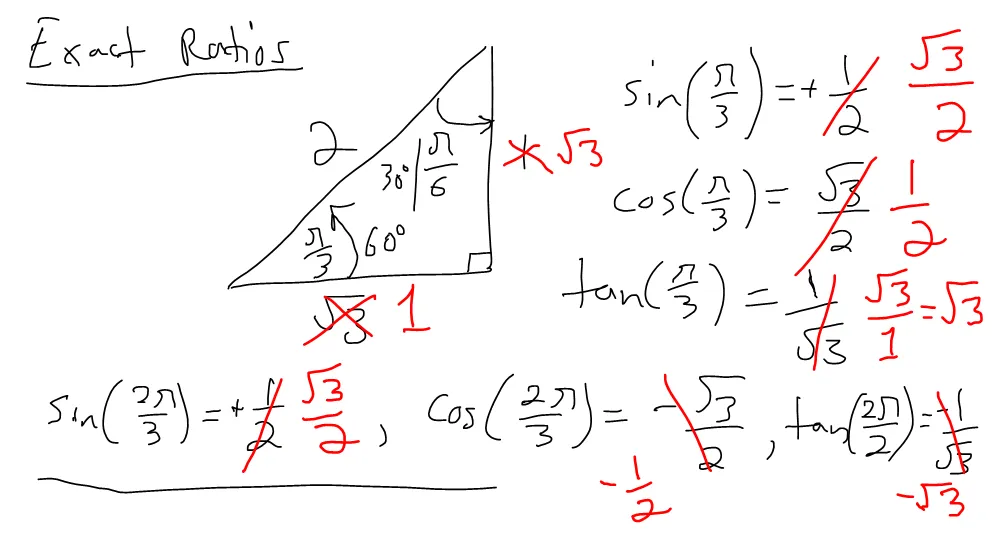 Exact Ratios
2
30° | π/6
π/3 60°
1 √3
√3 1
sin(π/3) = + 1/2 √3/2
cos(π/3) = √3/2 1/2
tan(π/3) = 1/√3 √3/1 = √3
sin(2π/3) = + 1/2 √3/2 , cos(2π/3) = -√3/2 , tan(2π/2) = -1/√3
-1/2 -√3